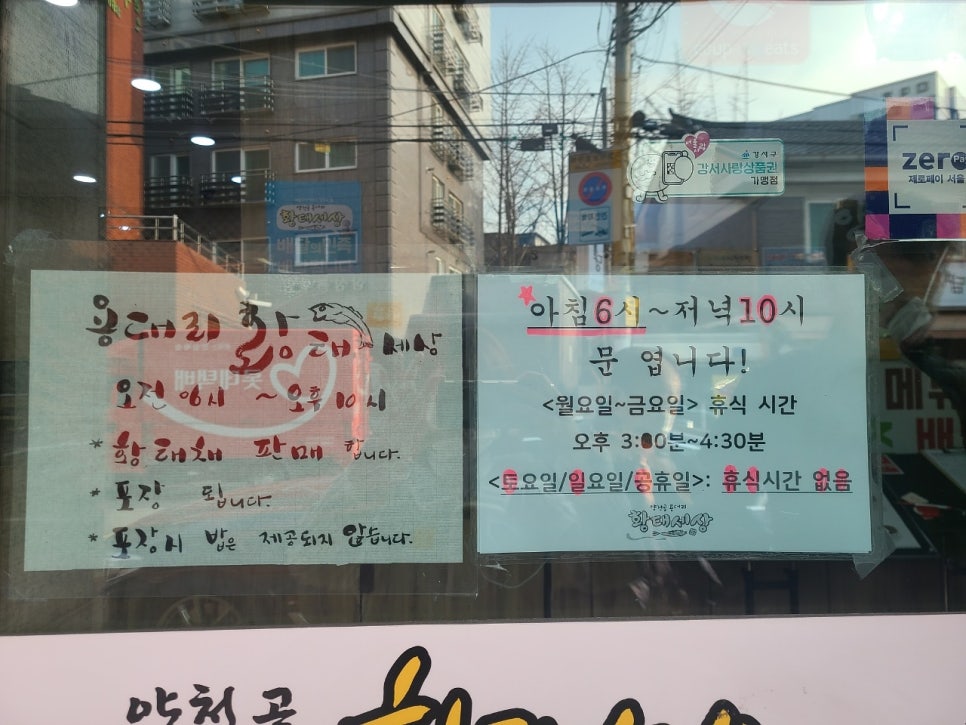 강서구
강서사랑상품권
가맹점
zero Pay
제로페이 서울
황태세상
용대리 황태 세상
오전 06시 ~ 오후 10시
* 황태채 판매 합니다.
* 포장 됩니다.
* 포장시 밥은 제공되지 않습니다.
롯데택배
아침6시~저녁10시
문 엽니다!
<월요일~금요일> 휴식 시간
오후 3:00분~4:30분
<토요일/일요일/공휴일>: 휴식시간 없음
황태세상
약천골